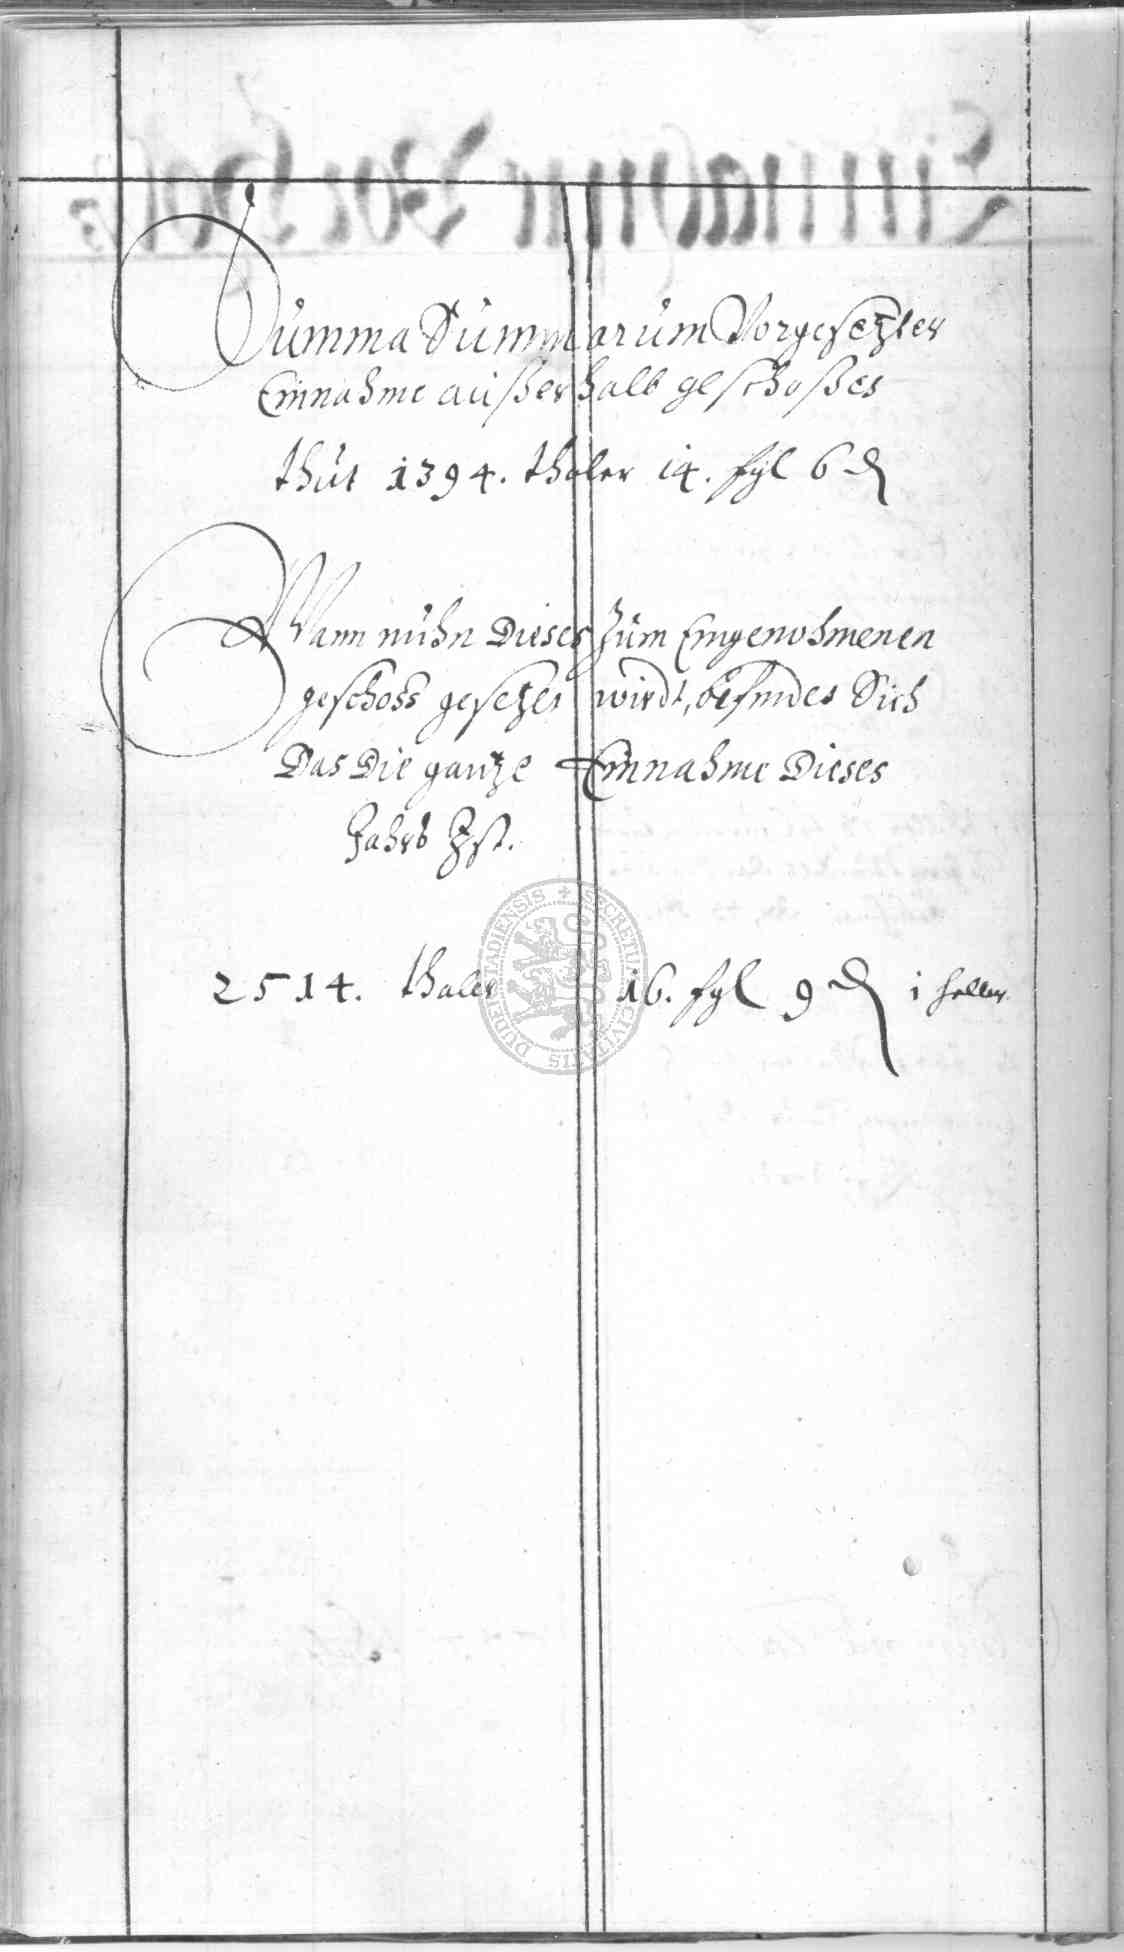 Summa Summarum Vorgesetzter
Einnahme außerhalb geschoßes
thut 1394. thaler 14. fgl 6 ₰
Wann nuhn Dieses zum Eingenohmenen
geschoss gesetzet wirdt, befindet Sich
Das Die gantze Einnahme Dieses
Jahrs Ist.
2514. thaler 16. fgl 9 ₰ 1 heller
SECRETUM CIVITATIS DUDERSTADIENSIS